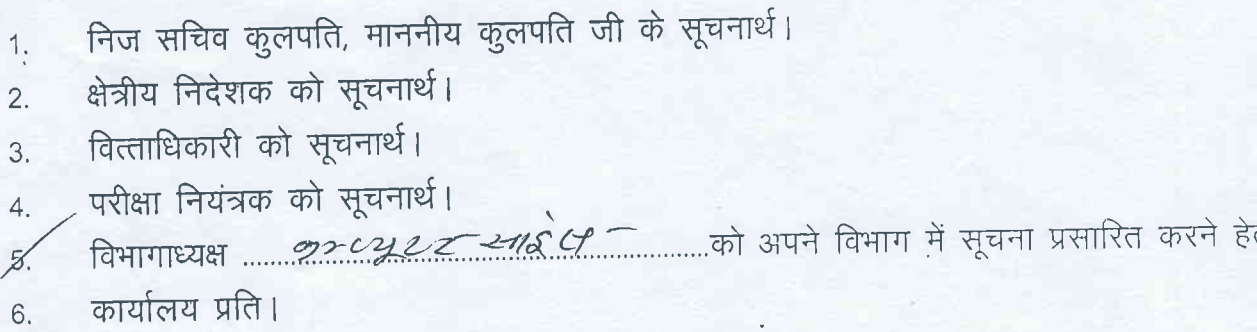 1. निज सचिव कुलपति, माननीय कुलपति जी के सूचनार्थ।
2. क्षेत्रीय निदेशक को सूचनार्थ।
3. वित्ताधिकारी को सूचनार्थ।
4. परीक्षा नियंत्रक को सूचनार्थ।
5. विभागाध्यक्ष ......कम्प्यूटर साइंस......को अपने विभाग में सूचना प्रसारित करने
6. कार्यालय प्रति।